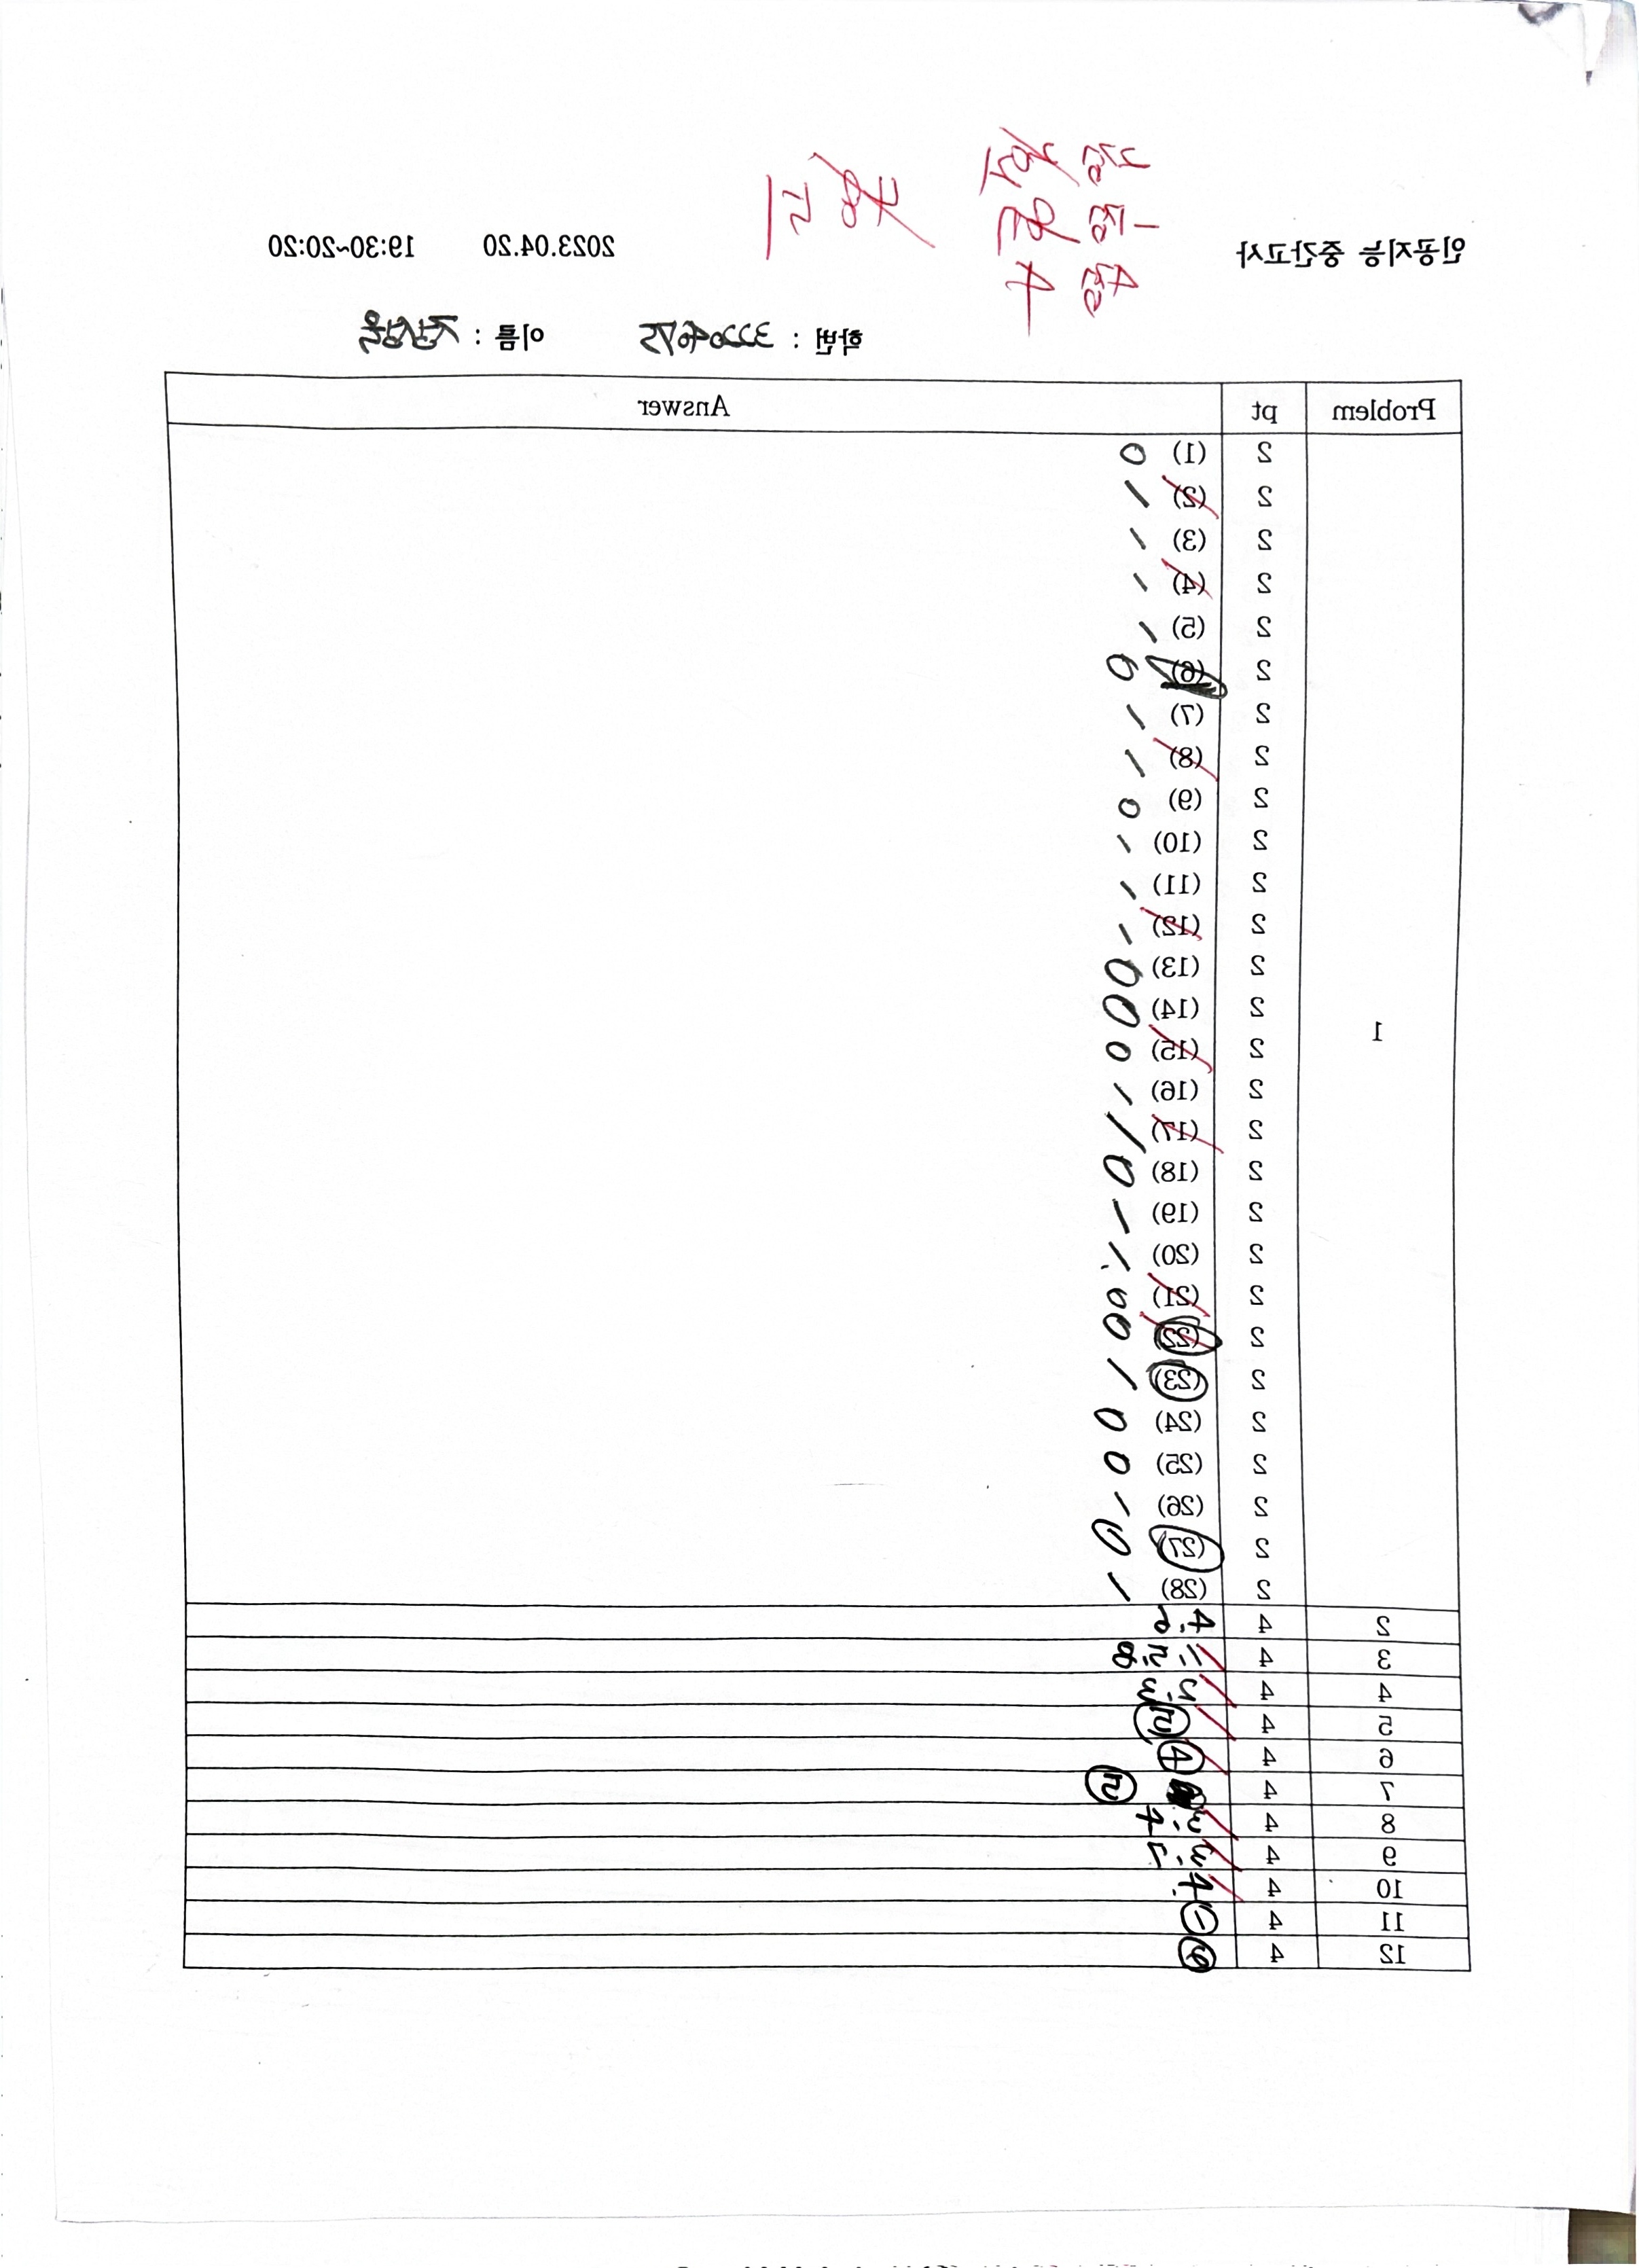 인공지능 중간고사 2023.04.20 19:30~20:20
학번 : 이름 :
Problem pt Answer
2 (1) 0
2 (2) 1
2 (3) 1
2 (4) 1
2 (5) 1
2 (6) 0
2 (7) 1
2 (8) 1
2 (9) 0
2 (10) 1
2 (11) 1
2 (12) 1
2 (13) 0
2 (14) 0
1
2 (15) 0
2 (16) 1
2 (17) 1
2 (18) 0
2 (19) 1
2 (20) 1
2 (21) 0
2 (22) 0
2 (23) 1
2 (24) 0
2 (25) 0
2 (26) 1
2 (27) 0
2 (28) 1
2 4
3 4
4 4
5 4
6 4 4
7 4 2
8 4
9 4
10 4 4
11 4
12 4